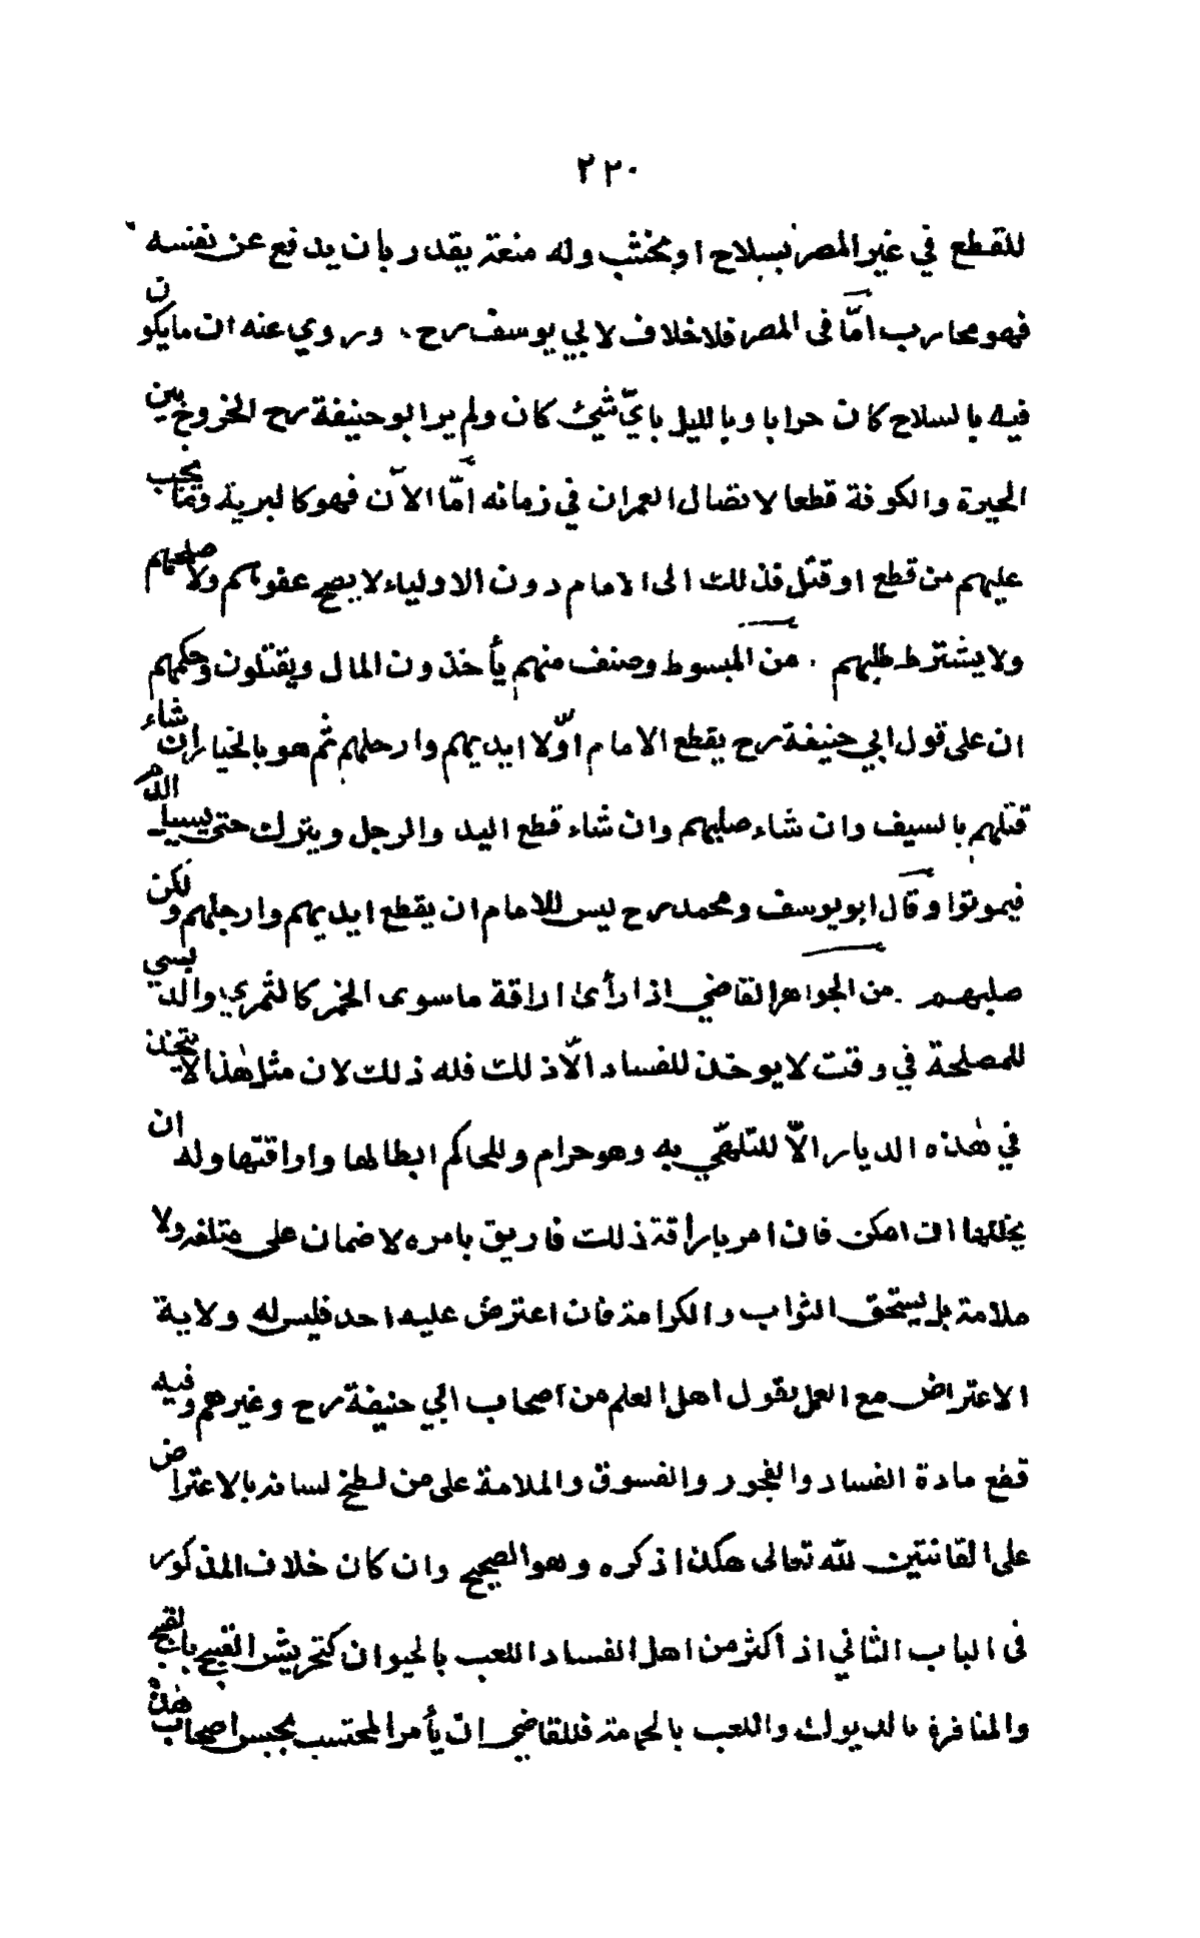 ٢٢٠
للقطع في غير المصر بسلاح او بخشب وله منعة يقدر بان يدفع عن نفسه
فهو محارب امّا فى المصر فلا خلاف لابي يوسف رح . وروي عنه ان ما يكون
فيه بالسلاح كان حرابا وبالليل بايّ شيئ كان ولم ير ابو حنيفة رح الخروج بين
الحيرة والكوفة قطعا لاتصال العمران في زمانه امّا الآن فهو كالبرية وما يجب
عليهم من قطع او قتل فذلك الى الامام دون الاولياء لا يصح عفوهم ولا صلحهم
ولا يشترط طلبهم . من المبسوط وصنف منهم يأخذون المال ويقتلون وحكمهم
ان على قول ابي حنيفة رح يقطع الامام اوّلا ايديهم وارجلهم ثم هو بالخيار ان شاء
قتلهم بالسيف وان شاء صلبهم وان شاء قطع اليد والرجل ويترك حتى يسيل الدم
فيموتوا وقال ابو يوسف ومحمد رح ليس للامام ان يقطع ايديهم وارجلهم ولكن
صلبهم . من الجواهر القاضي اذا رأى اراقة ما سوى الخمر كالتمري والدبسي
للمصلحة في وقت لا يوخذ للفساد الّا ذلك فله ذلك لان مثل هٰذا لا يتخذ
في هٰذه الديار الاّ للتلهّي به وهو حرام وللحاكم ابطالها واراقتها وله ان
يخللها ان امكن فان امر باراقة ذلك فاريق بامره لا ضمان على متلفه ولا
ملامة بل يستحق الثواب والكرامة فان اعترض عليه احد فليس له ولاية
الاعتراض مع العمل بقول اهل العلم من اصحاب ابي حنيفة رح وغيرهم وفيه
قطع مادة الفساد والفجور والفسوق والملامة على من لطخ لسانه بالاعتراض
على القانتين لله تعالى هكذا ذكره وهو الصحيح وان كان خلاف المذكور
فى الباب الثاني اذ اكثر من اهل الفساد اللعب بالحيوان كتحريش القبج بالقبج
والمنافرة بالديوك واللعب بالحمامة فللقاضي ان يأمر المحتسب بحبس اصحاب هٰذه